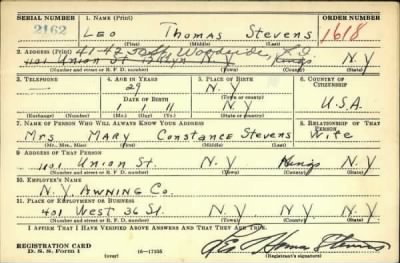 SERIAL NUMBER 1. NAME (Print) ORDER NUMBER
2162 LEO Thomas STEVENS 1618
(First) (Middle) (Last)
2. ADDRESS (Print) 41-42 50 St, Woodside, L.I.
1101 Union St Bklyn N.Y. Kings N.Y
(Number and street or R. F. D. number) (Town) (County) (State)
3. TELEPHONE 4. AGE IN YEARS 5. PLACE OF BIRTH 6. COUNTRY OF CITIZENSHIP
— 29 N.Y
DATE OF BIRTH (Town or county)
1 11 N.Y U.S.A.
(Exchange) (Number) (Mo.) (Day) (Yr.) (State or country)
7. NAME OF PERSON WHO WILL ALWAYS KNOW YOUR ADDRESS 8. RELATIONSHIP OF THAT PERSON
Mrs MARY Constance STEVENS Wife
(Mr., Mrs., Miss) (First) (Middle) (Last)
9. ADDRESS OF THAT PERSON
1101 Union St. N.Y Kings N.Y
(Number and street or R. F. D. number) (Town) (County) (State)
10. EMPLOYER'S NAME
N.Y. AWNING Co.
11. PLACE OF EMPLOYMENT OR BUSINESS
401 West 36 St. N.Y N.Y
(Number and street or R. F. D. number) (Town) (County) (State)
I AFFIRM THAT I HAVE VERIFIED ABOVE ANSWERS AND THAT THEY ARE TRUE.
REGISTRATION CARD
D. S. S. Form 1 16—17105 Leo Thomas Stevens
(over) (Registrant's signature)